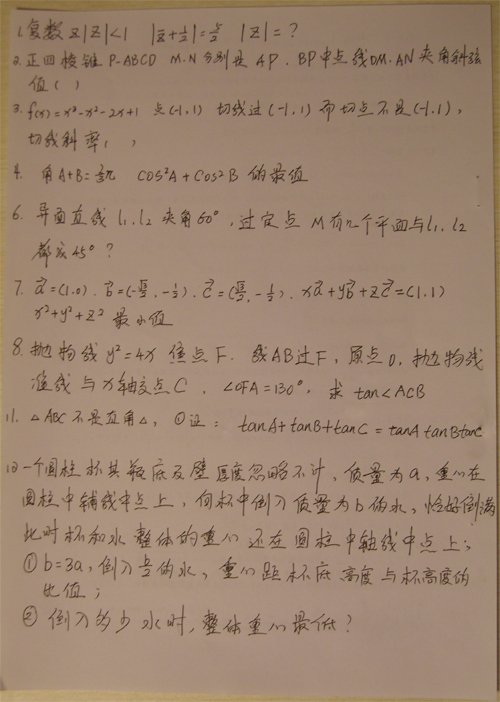 1.复数z |z|<1 |z̄+1/z|=5/2 |z|=?
2.正四棱锥P-ABCD M.N分别是AP.BP中点线DM.AN夹角斜弦
值( )
3.f(x)=x³-x²-2x+1 点(-1,1) 切线过(-1,1)而切点不是(-1,1),
切线斜率( )
4. 角A+B=π cos²A+cos²B的最值
6. 异面直线l₁.l₂夹角60°,过定点M有几个平面与l₁.l₂
都成45°?
7. a⃗=(1.0).b⃗=(-√3/2,-1/2).c⃗=(√3/2,-1/2).xa⃗+yb⃗+zc⃗=(1.1)
x²+y²+z²最小值
8.抛物线y²=4x 焦点F.线AB过F,原点O,抛物线
准线与x轴交点C.∠OFA=130°,求tan<ACB
11.△ABC不是直角△,①证: tanA+tanB+tanC=tanA tanBtanC
10一个圆柱杯其瓶底及壁厚度忽略不计,质量为a,重心在
圆柱中轴线中点上,向杯中倒入质量为b的水,恰好倒满
此时杯和水整体的重心还在圆柱中轴线中点上;
①b=3a,倒入b/2的水,重心距杯底高度与杯高度的
比值;
②倒入多少水时,整体重心最低?